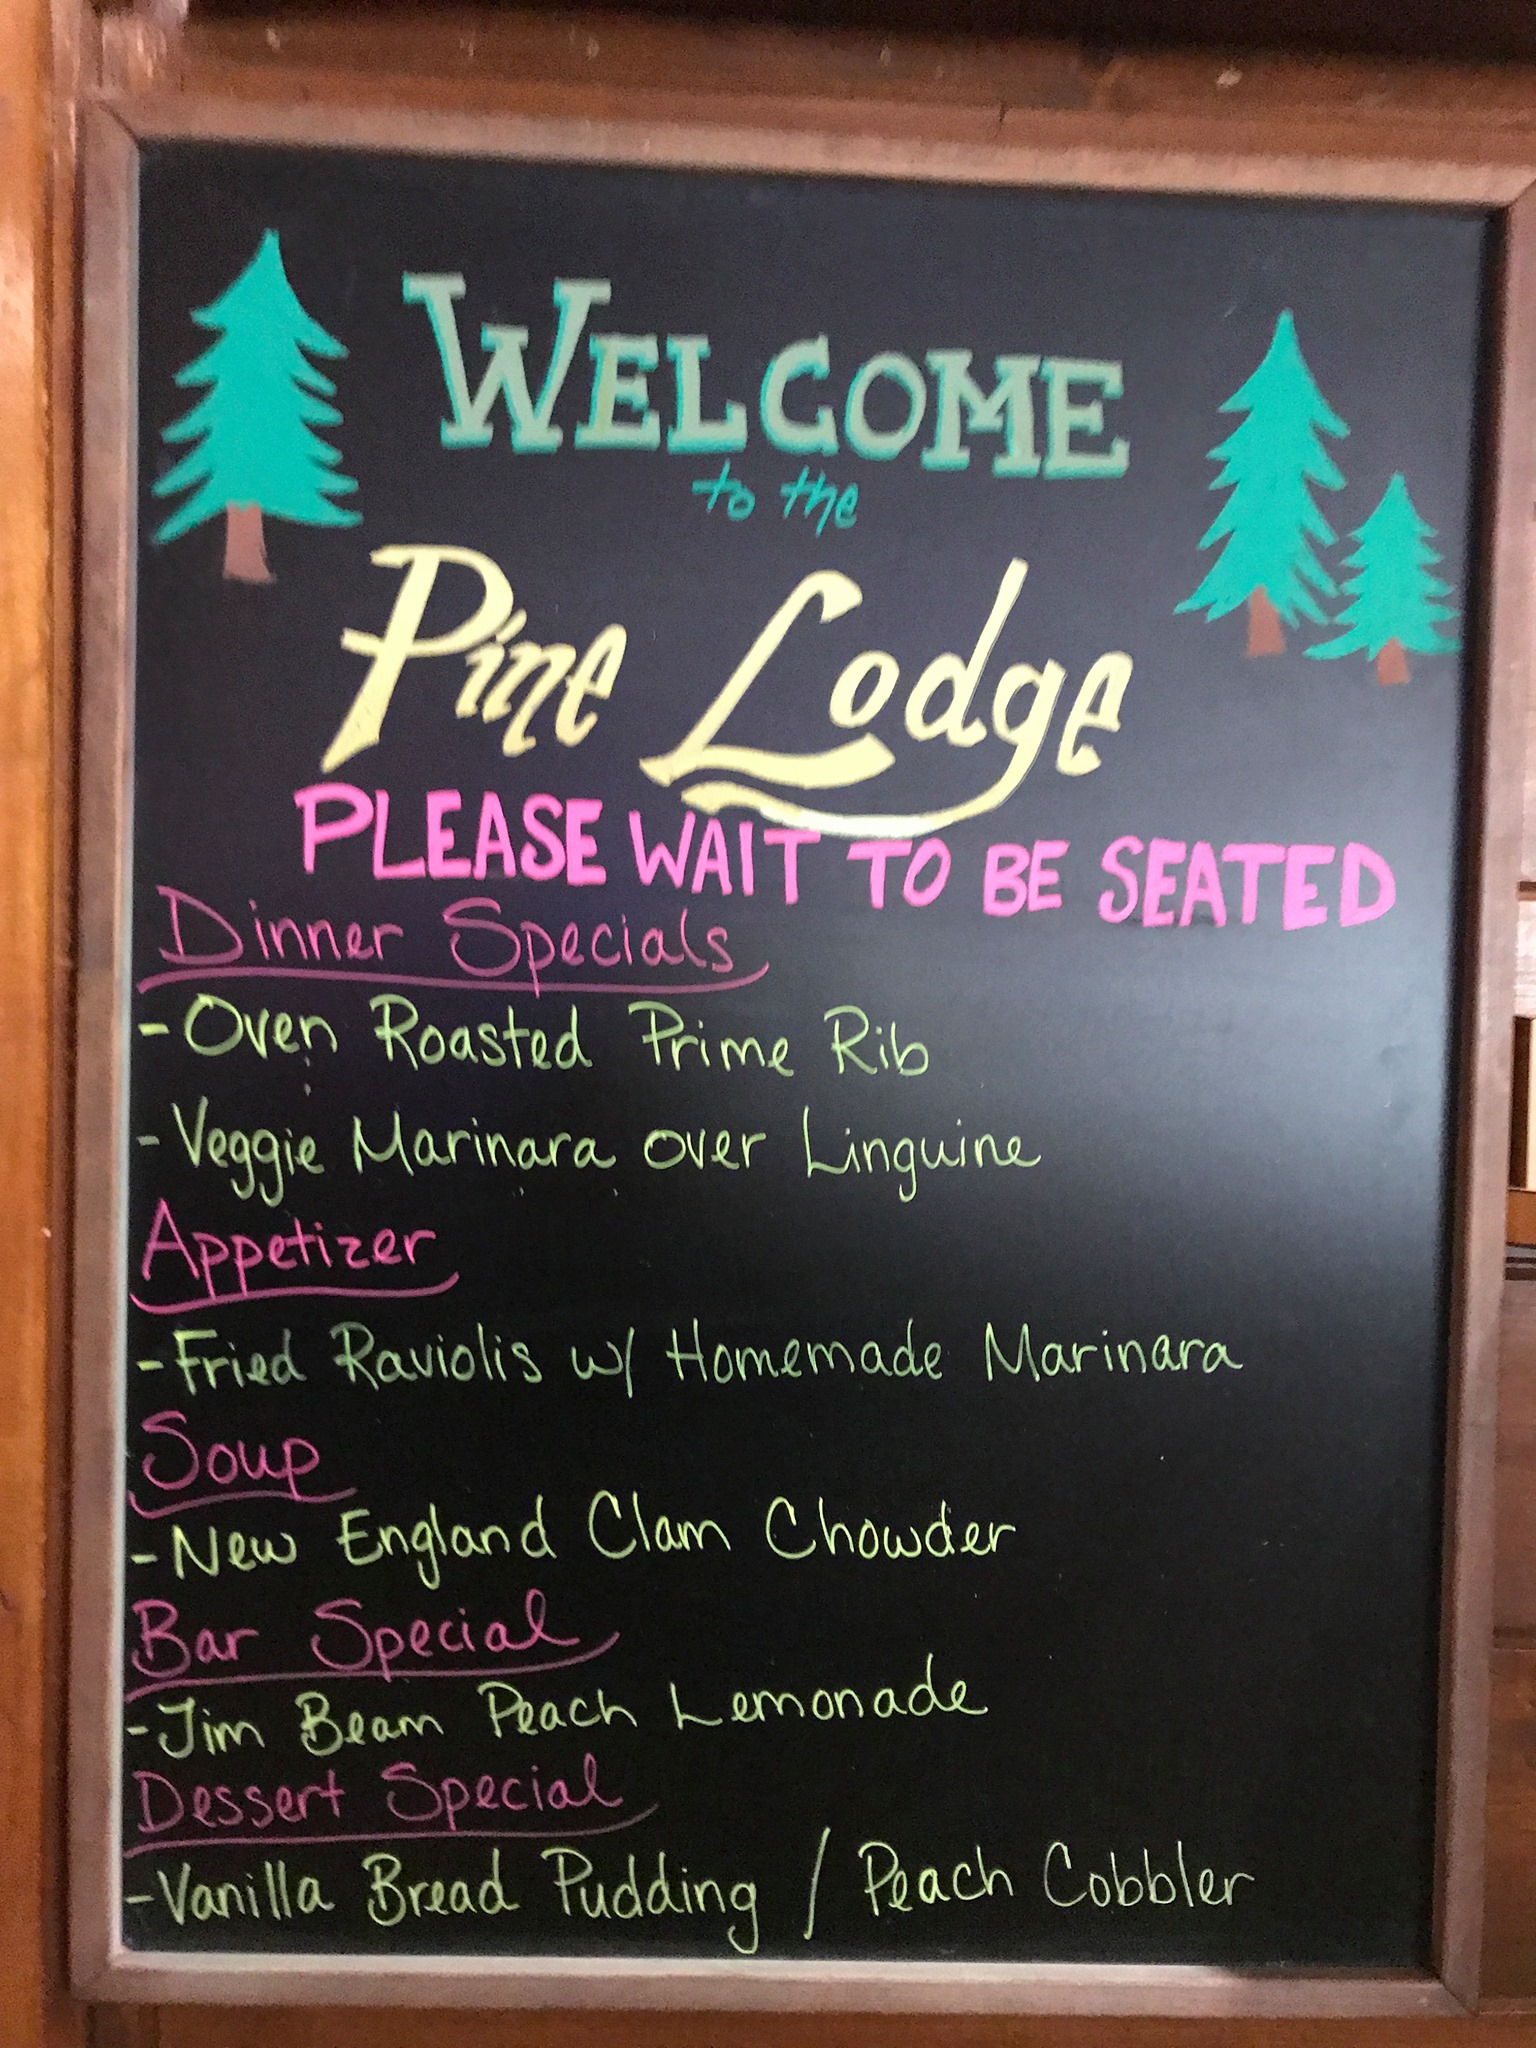 WELCOME
to the
Pine Lodge
PLEASE WAIT TO BE SEATED
Dinner Specials
-Oven Roasted Prime Rib
-Veggie Marinara over Linguine
Appetizer
-Fried Raviolis w/ Homemade Marinara
Soup
-New England Clam Chowder
Bar Special
-Jim Beam Peach Lemonade
Dessert Special
-Vanilla Bread Pudding / Peach Cobbler